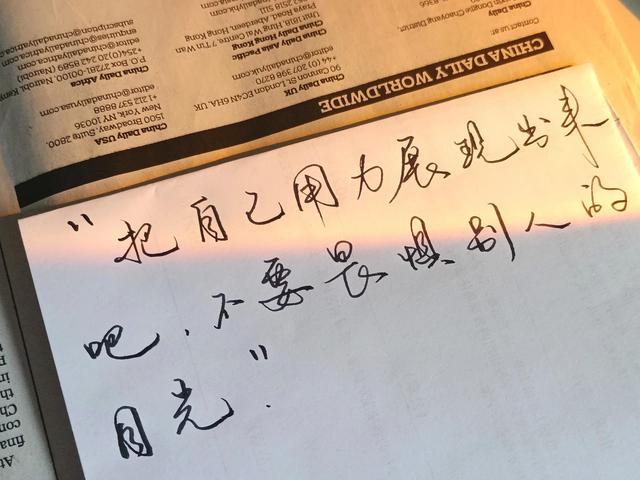 "把自己用力展现出来
吧，不要畏惧别人的
目光".
CHINA DAILY WORLDWIDE
Contact us at
China Daily USA
1500 Broadway, Suite 2800,
New York, NY 10036
+1 212 537 8888
editor@chinadailyusa.com
China Daily UK
90 Cannon St, London EC4N 6HA, UK
+44 (0) 207 398 8270
editor@chinadailyuk.com
China Daily Asia Pacific
China Daily Hong Kong
editor@chinadailyafrica.com
China Daily Africa
P.O. Box 27281-00100 (Nairobi)
+254 (0) 20 243 8905 (Nairobi)
editor@chinadailyafrica.com
enquiries@chinadailyafrica.com
subscription@chinadailyafrica.com